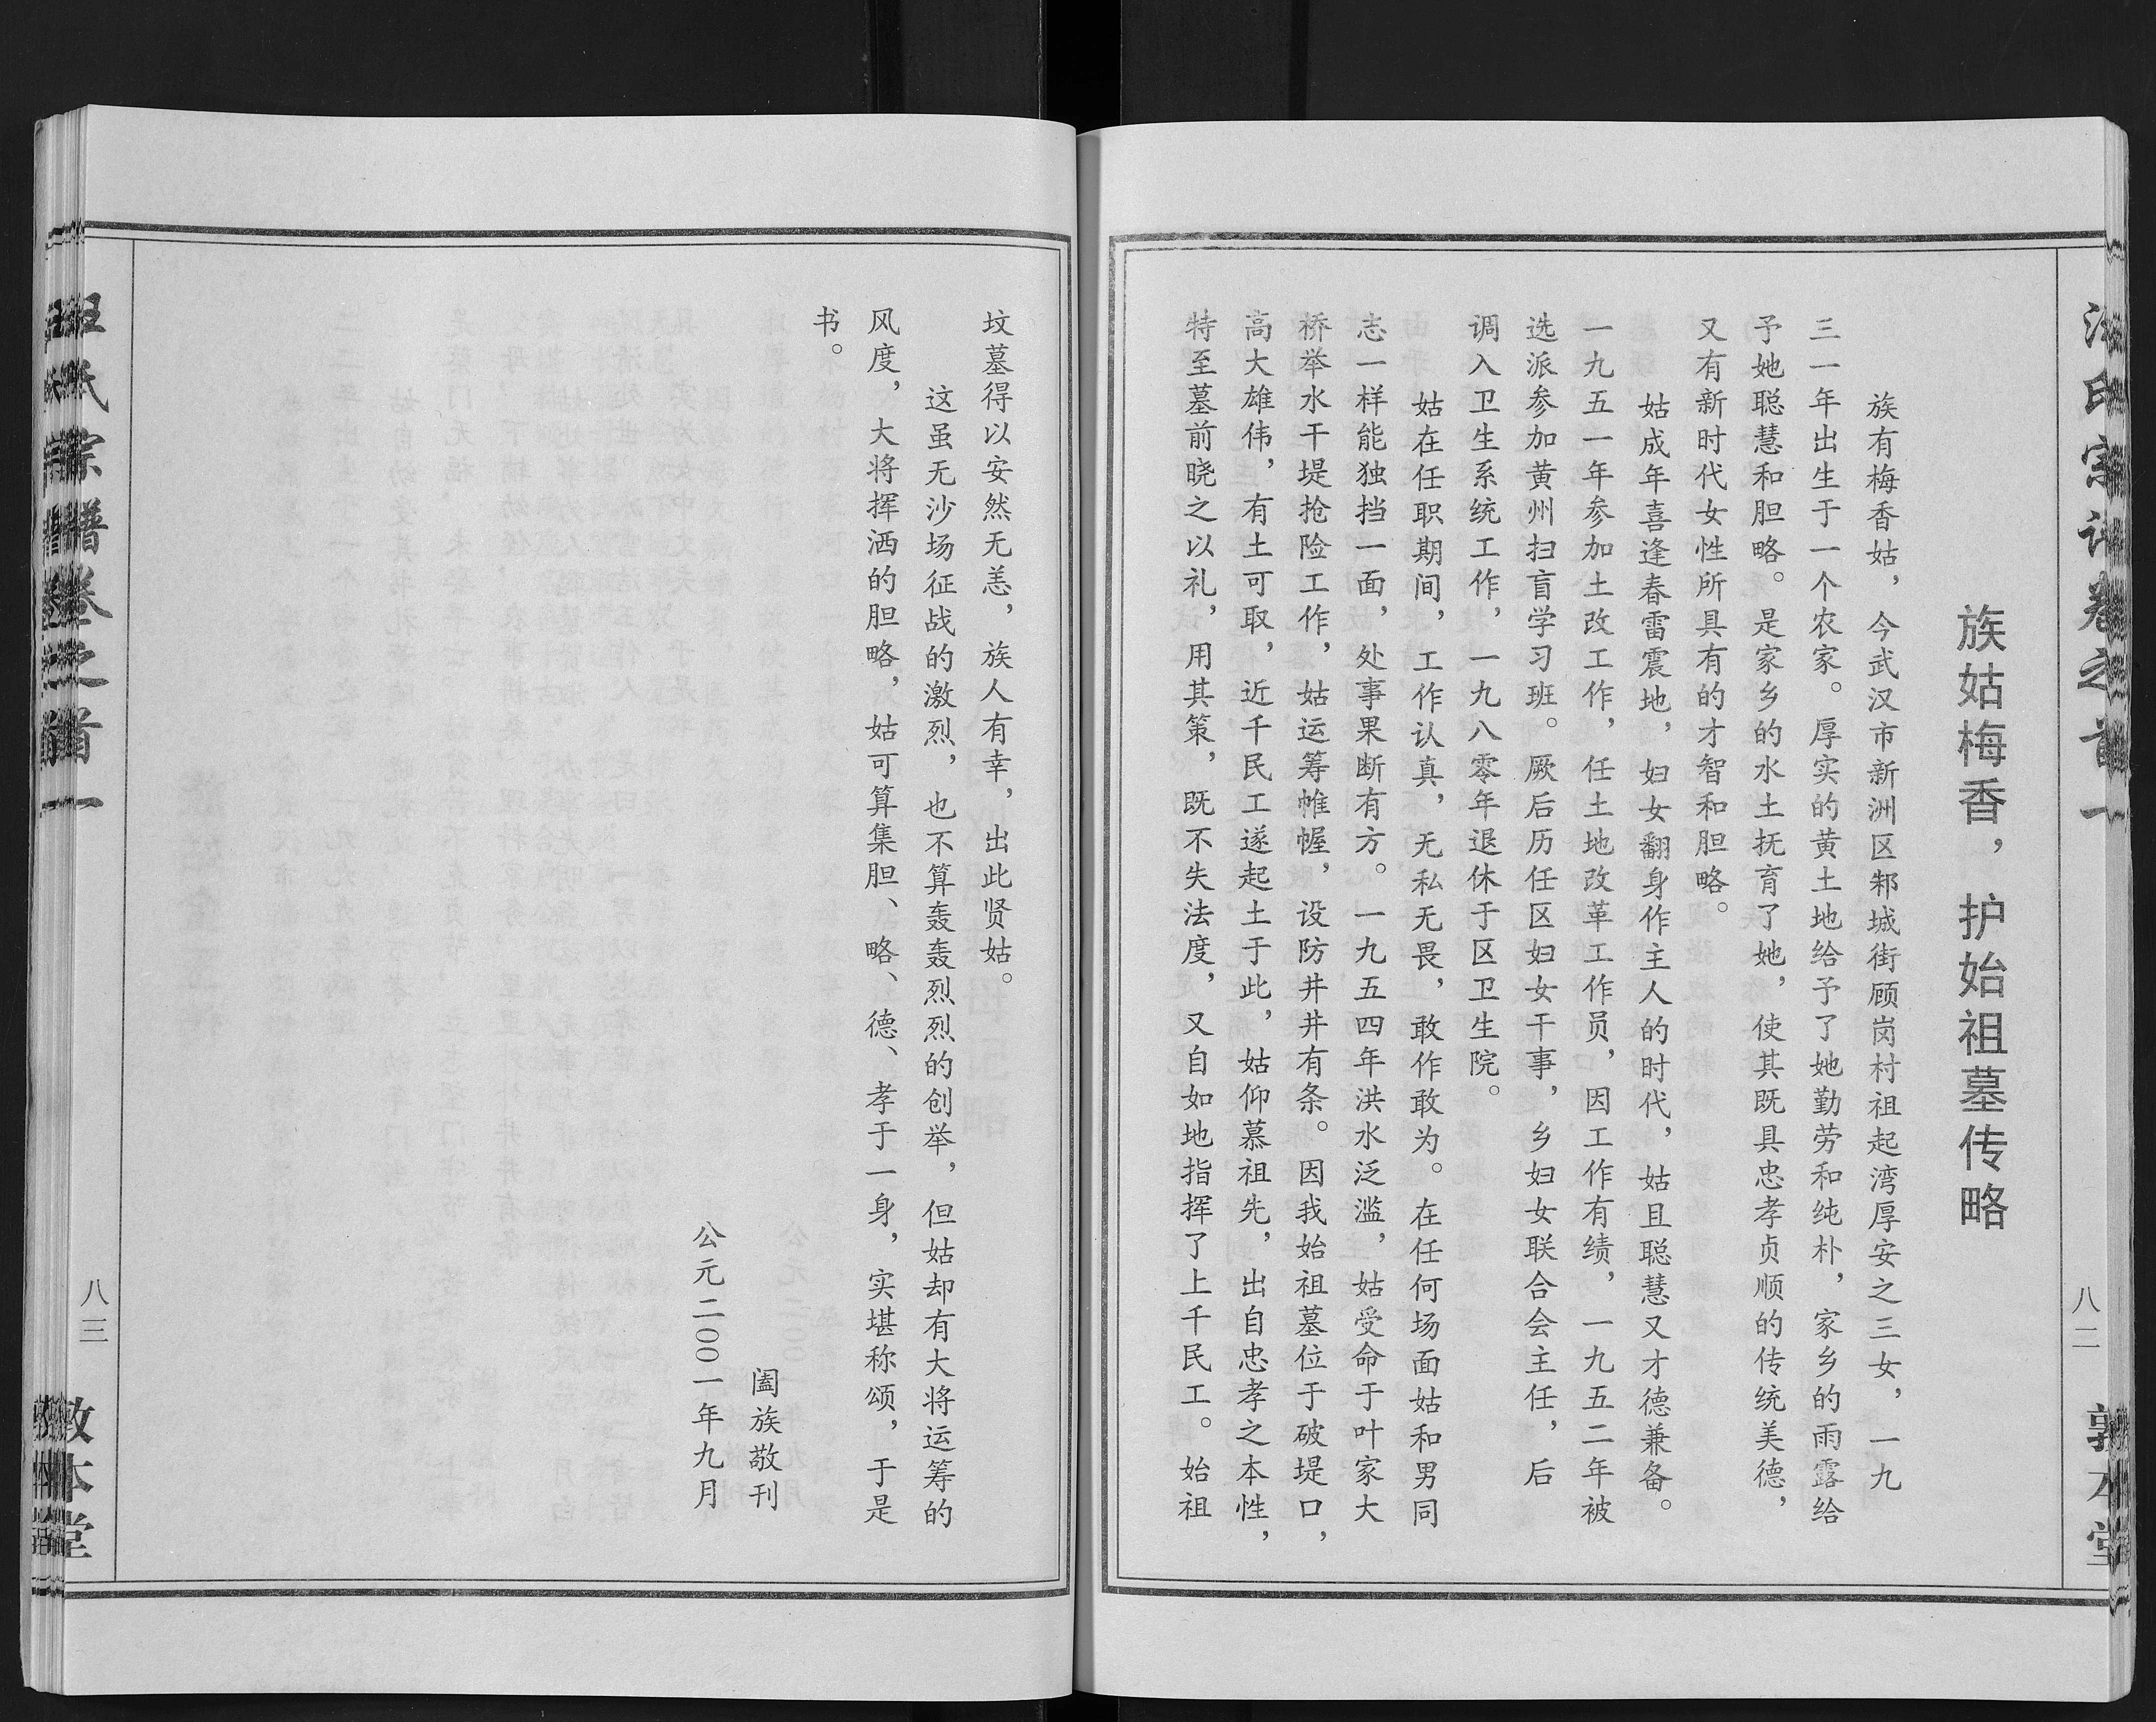 族姑梅香，护始祖墓传略
族有梅香姑，今武汉市新洲区邾城街顾岗村祖起湾厚安之三女，一九
三一年出生于一个农家。厚实的黄土地给予了她勤劳和纯朴，家乡的雨露给
予她聪慧和胆略。是家乡的水土抚育了她，使其既具忠孝贞顺的传统美德，
又有新时代女性所具有的才智和胆略。
姑成年喜逢春雷震地，妇女翻身作主人的时代，姑且聪慧又才德兼备。
一九五一年参加土改工作，任土地改革工作员，因工作有绩，一九五二年被
选派参加黄州扫盲学习班。厥后历任区妇女干事，乡妇女联合会主任，后
调入卫生系统工作，一九八零年退休于区卫生院。
姑在任职期间，工作认真，无私无畏，敢作敢为。在任何场面姑和男同
志一样能独挡一面，处事果断有方。一九五四年洪水泛滥，姑受命于叶家大
桥举水干堤抢险工作，姑运筹帷幄，设防井井有条。因我始祖墓位于破堤口，
高大雄伟，有土可取，近千民工遂起土于此，姑仰慕祖先，出自忠孝之本性，
特至墓前晓之以礼，用其策，既不失法度，又自如地指挥了上千民工。始祖
八二
敦本堂
坟墓得以安然无恙，族人有幸，出此贤姑。
这虽无沙场征战的激烈，也不算轰轰烈烈的创举，但姑却有大将运筹的
风度，大将挥洒的胆略，姑可算集胆、略、德、孝于一身，实堪称颂，于是
书。
阖族敬刊
公元二〇〇一年九月
氏宗谱卷之首一
八三
敦本堂